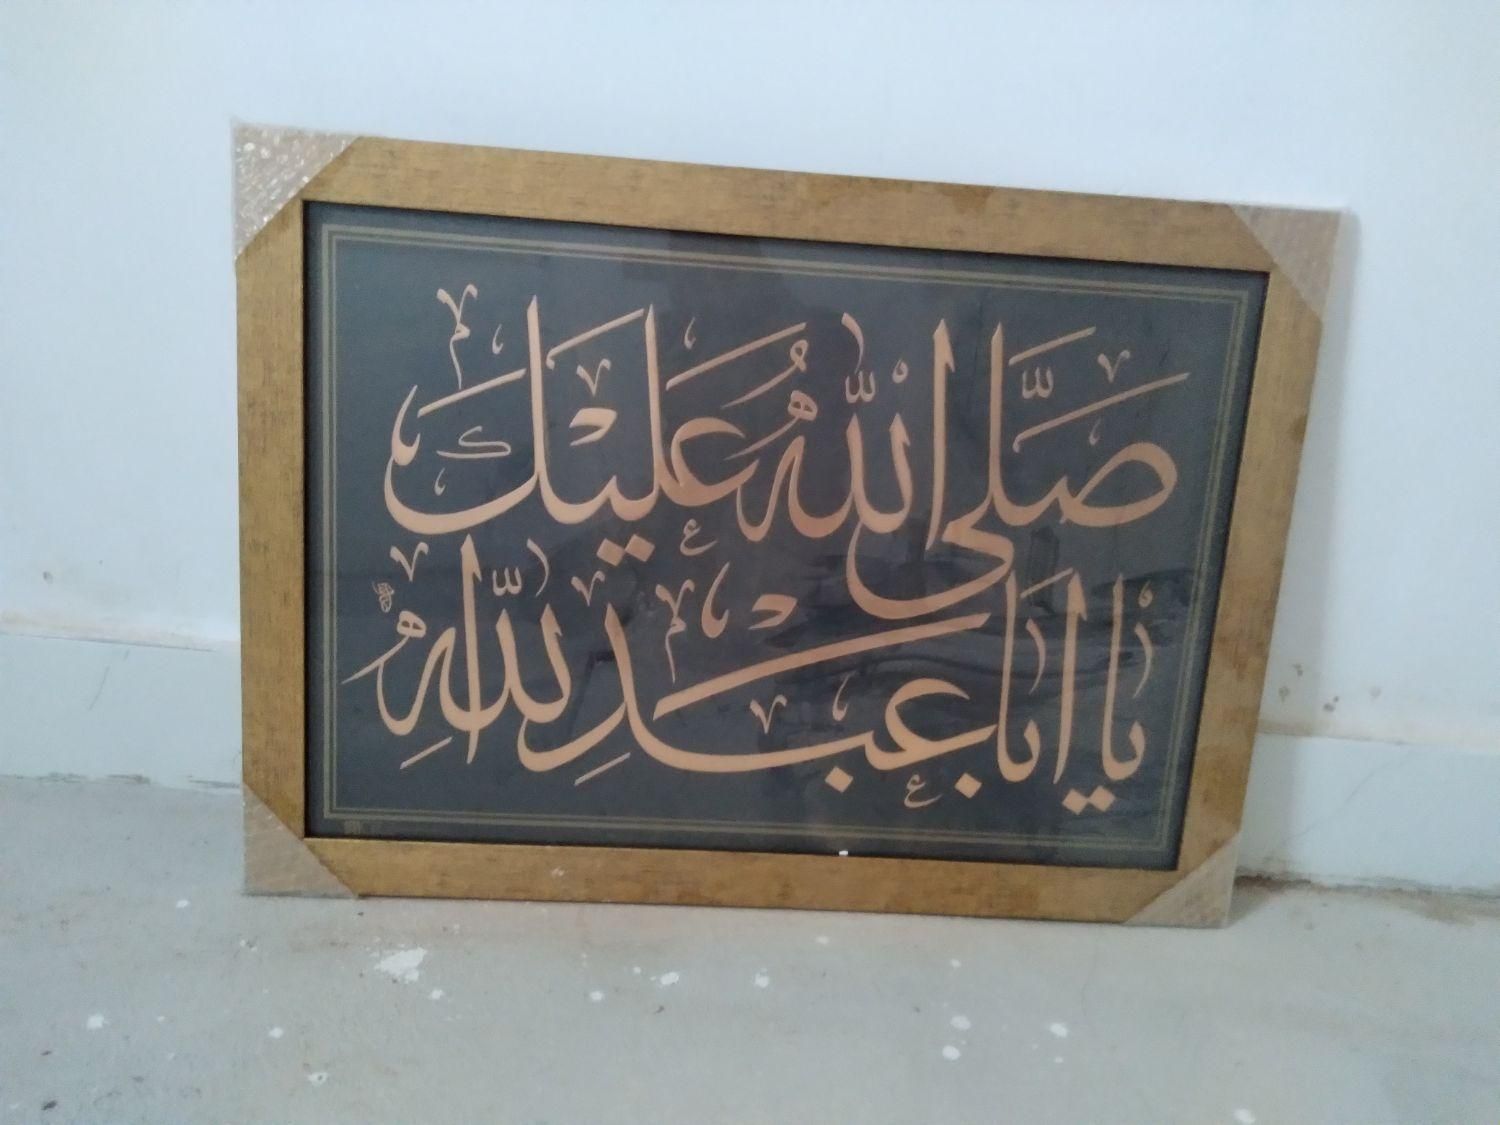 صَلَّى اللهُ عَلَيْكَ
يَا اَبَا عَبْدِ اللهِ